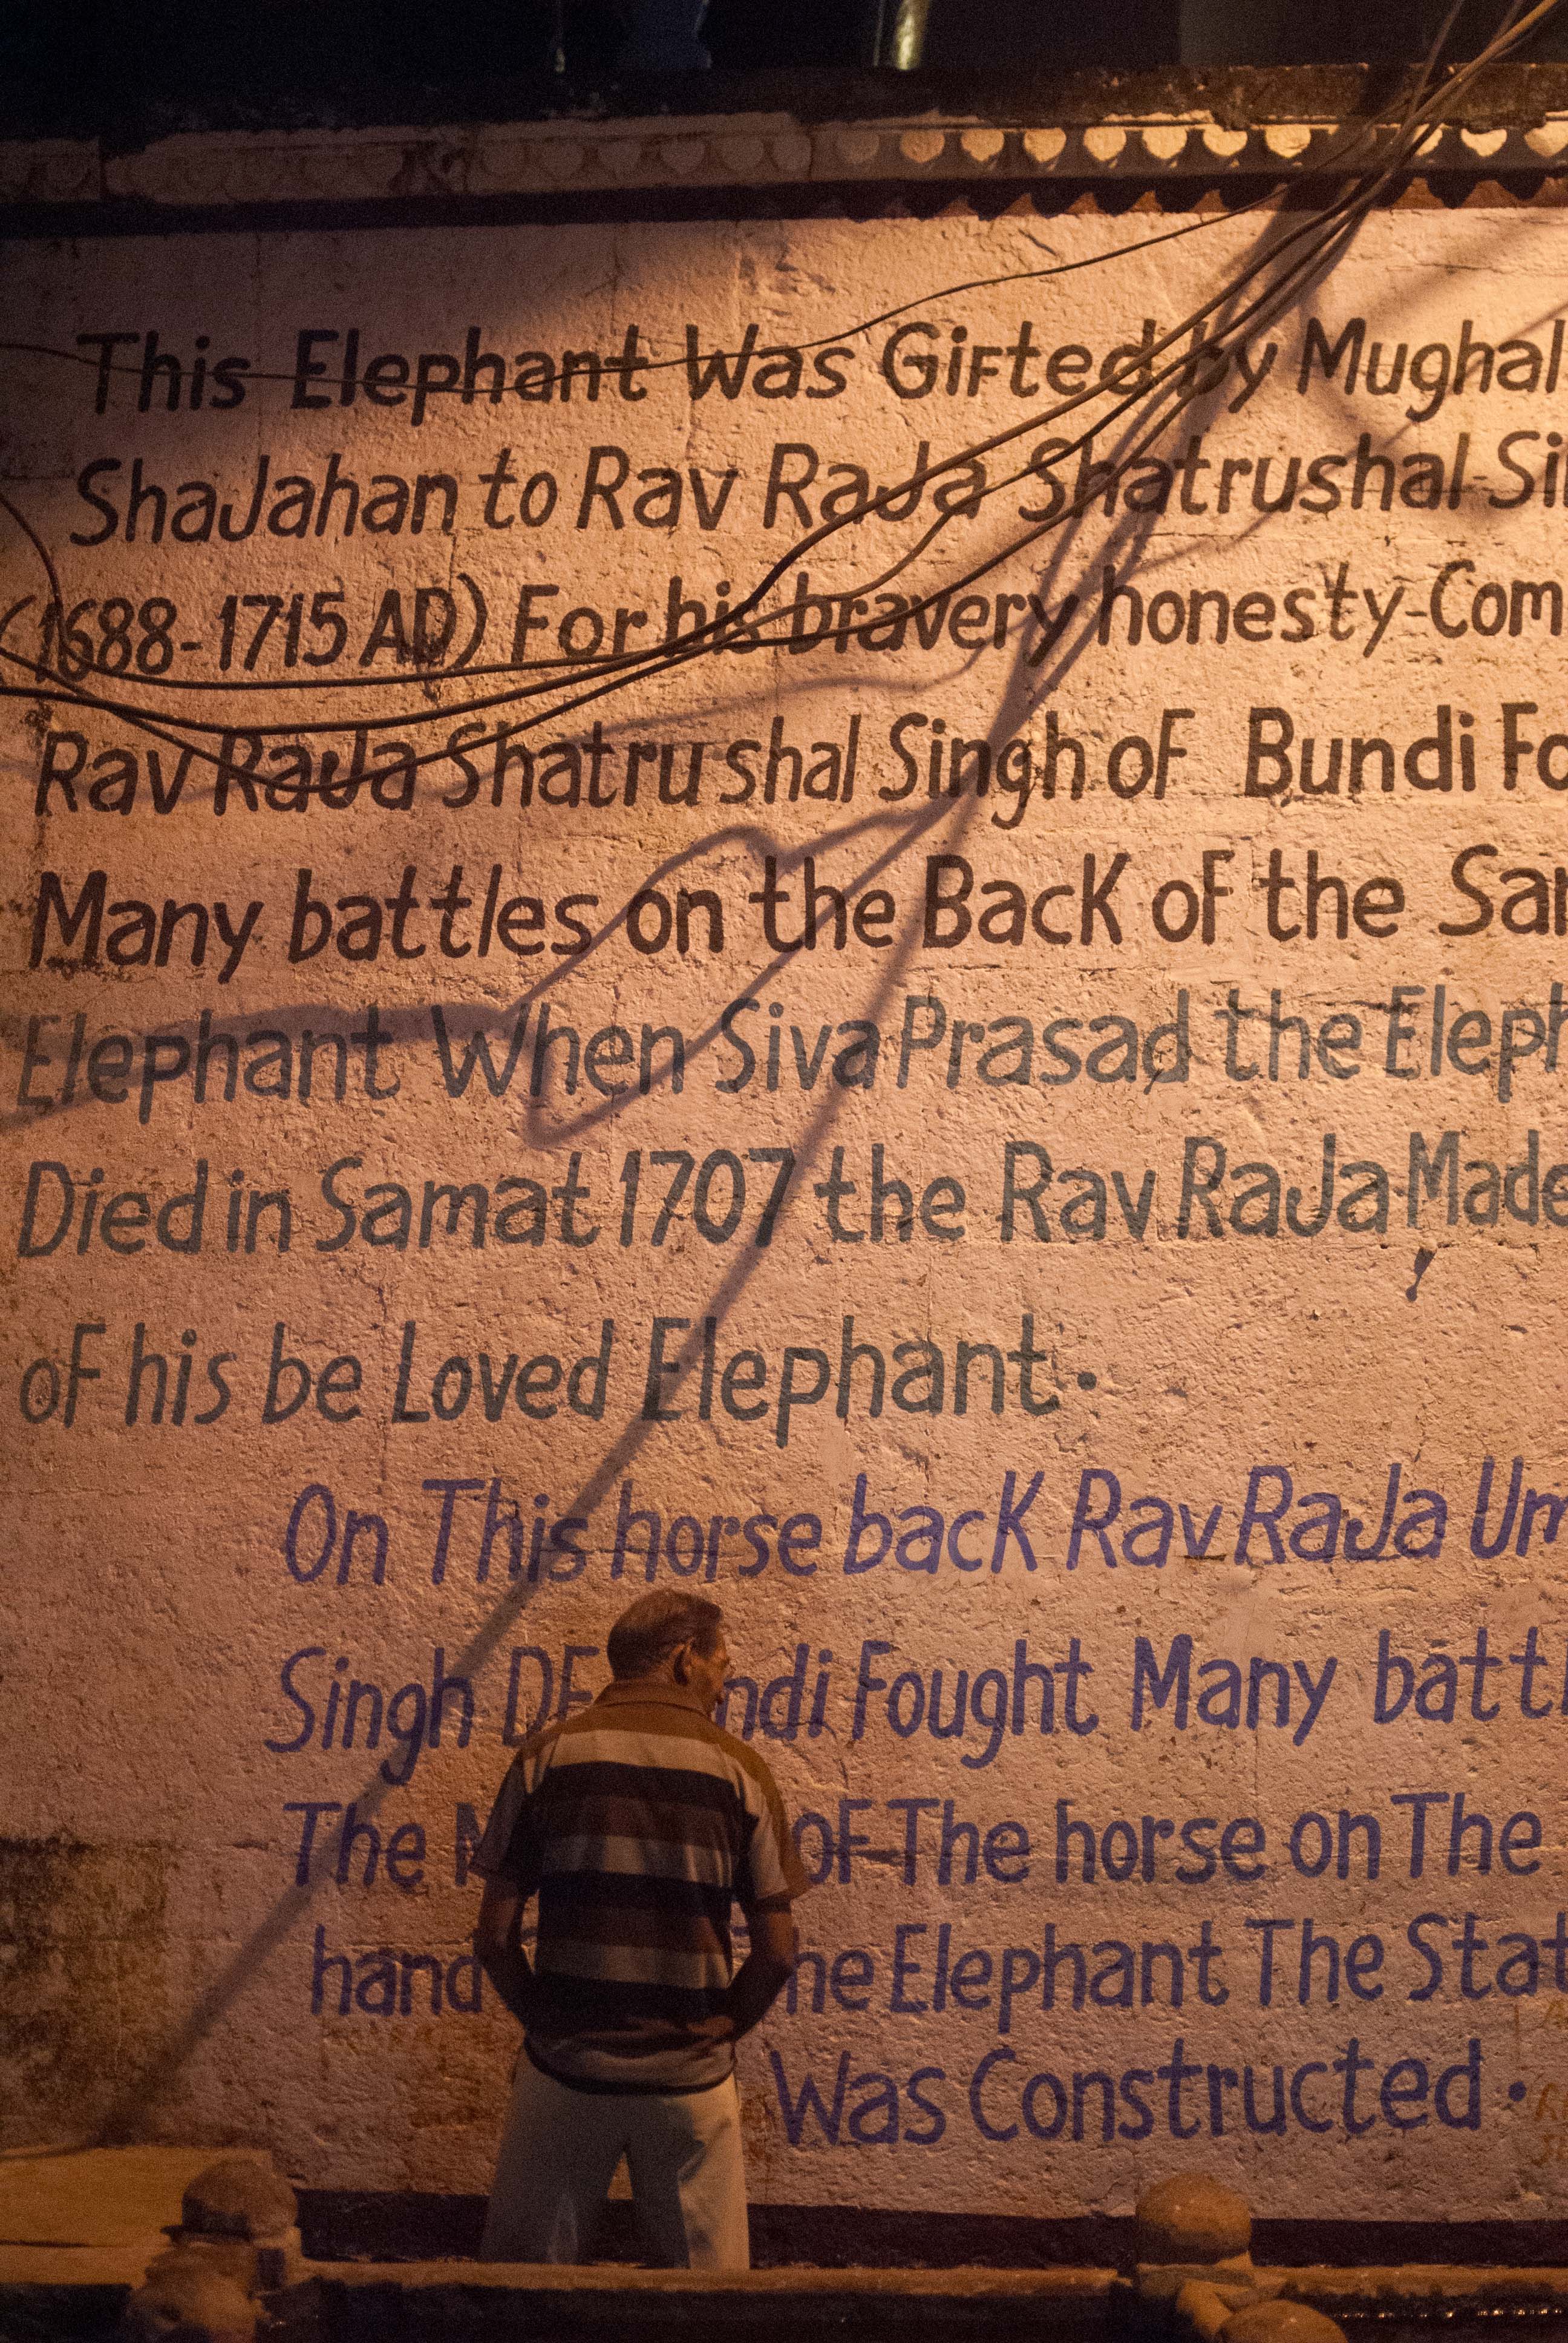 This Elephant Was Gifted by Mughal
ShaJahan to Rav RaJa Shatrushal-Si
(1688-1715 AD) For his bravery honesty-Com
Rav RaJa Shatrushal Singh oF Bundi Fo
Many battles on the BacK oF the Sa
Elephant When Siva Prasad the Eleph
Died in Samat 1707 the Rav RaJa Made
oF his be Loved Elephant.
On This horse bacK Rav RaJa Um
Singh ndi Fought Many battl
The oF The horse on The
hand he Elephant The Stat
Was Constructed.